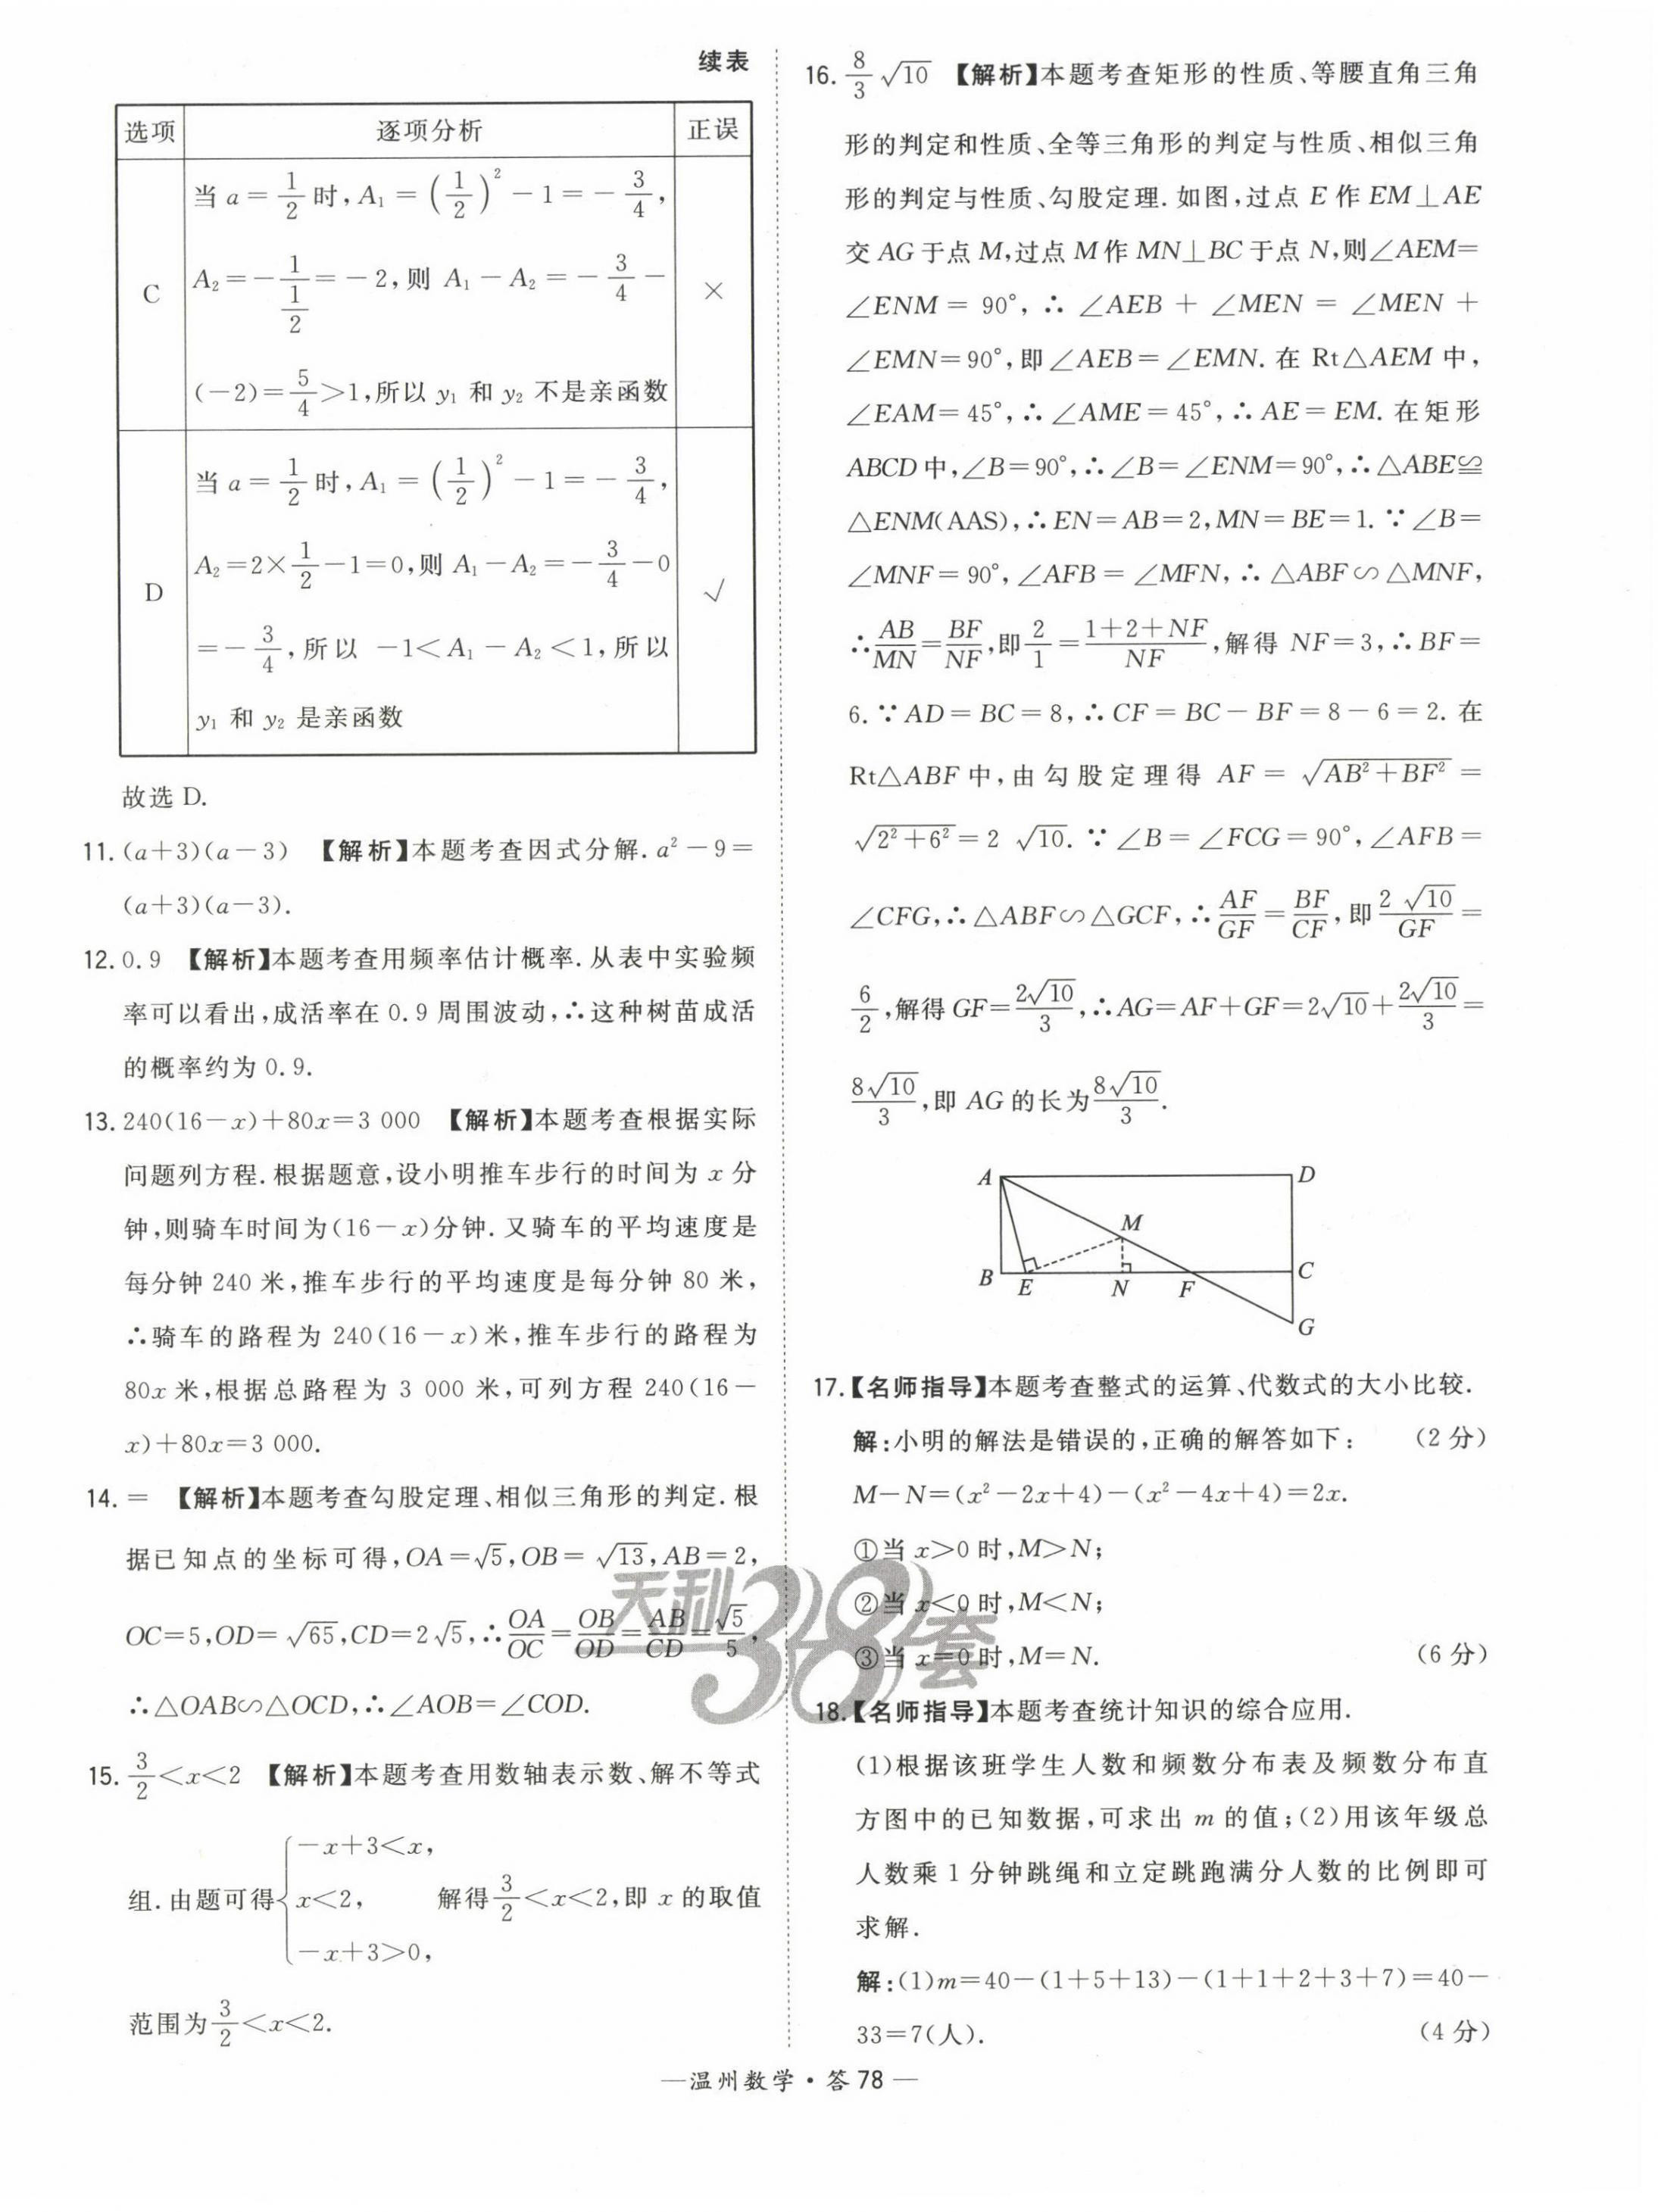 续表
选项 逐项分析 正误
C
当 a=1/2 时,A₁=(1/2)²-1=-3/4,
A₂=-1/(1/2)=-2,则 A₁-A₂=-3/4-
(-2)=5/4>1,所以 y₁ 和 y₂ 不是亲函数
×
D
当 a=1/2 时,A₁=(1/2)²-1=-3/4,
A₂=2×1/2-1=0,则 A₁-A₂=-3/4-0
=-3/4,所以 -1<A₁-A₂<1,所以
y₁ 和 y₂ 是亲函数
√
故选 D.
11.(a+3)(a-3) 【解析】本题考查因式分解.a²-9=
(a+3)(a-3).
12.0.9 【解析】本题考查用频率估计概率.从表中实验频
率可以看出,成活率在 0.9 周围波动,∴这种树苗成活
的概率约为 0.9.
13.240(16-x)+80x=3 000 【解析】本题考查根据实际
问题列方程.根据题意,设小明推车步行的时间为 x 分
钟,则骑车时间为(16-x)分钟.又骑车的平均速度是
每分钟 240 米,推车步行的平均速度是每分钟 80 米,
∴骑车的路程为 240(16-x)米,推车步行的路程为
80x 米,根据总路程为 3 000 米,可列方程 240(16-
x)+80x=3 000.
14.= 【解析】本题考查勾股定理、相似三角形的判定.根
据已知点的坐标可得,OA=√5,OB=√13,AB=2,
OC=5,OD=√65,CD=2√5,∴OA/OC=OB/OD=AB/CD=√5/5,
∴△OAB∽△OCD,∴∠AOB=∠COD.
15.3/2<x<2 【解析】本题考查用数轴表示数、解不等式
-x+3<x,
组.由题可得{x<2, 解得3/2<x<2,即 x 的取值
-x+3>0,
范围为3/2<x<2.
16.8/3√10 【解析】本题考查矩形的性质、等腰直角三角
形的判定和性质、全等三角形的判定与性质、相似三角
形的判定与性质、勾股定理.如图,过点 E 作 EM⊥AE
交 AG 于点 M,过点 M 作 MN⊥BC 于点 N,则∠AEM=
∠ENM=90°,∴∠AEB+∠MEN=∠MEN+
∠EMN=90°,即∠AEB=∠EMN.在 Rt△AEM 中,
∠EAM=45°,∴∠AME=45°,∴AE=EM.在矩形
ABCD 中,∠B=90°,∴∠B=∠ENM=90°,∴△ABE≌
△ENM(AAS),∴EN=AB=2,MN=BE=1.∵∠B=
∠MNF=90°,∠AFB=∠MFN,∴△ABF∽△MNF,
∴AB/MN=BF/NF,即2/1=(1+2+NF)/NF,解得 NF=3,∴BF=
6.∵AD=BC=8,∴CF=BC-BF=8-6=2.在
Rt△ABF 中,由勾股定理得 AF=√(AB²+BF²)=
√(2²+6²)=2√10.∵∠B=∠FCG=90°,∠AFB=
∠CFG,∴△ABF∽△GCF,∴AF/GF=BF/CF,即2√10/GF=
6/2,解得 GF=2√10/3,∴AG=AF+GF=2√10+2√10/3=
8√10/3,即 AG 的长为8√10/3.
A D
M
B E N F C
G
17.【名师指导】本题考查整式的运算、代数式的大小比较.
解:小明的解法是错误的,正确的解答如下: (2 分)
M-N=(x²-2x+4)-(x²-4x+4)=2x.
①当 x>0 时,M>N;
②当 x<0 时,M<N;
③当 x=0 时,M=N. (6 分)
天利38套
18.【名师指导】本题考查统计知识的综合应用.
(1)根据该班学生人数和频数分布表及频数分布直
方图中的已知数据,可求出 m 的值;(2)用该年级总
人数乘 1 分钟跳绳和立定跳跑满分人数的比例即可
求解.
解:(1)m=40-(1+5+13)-(1+1+2+3+7)=40-
33=7(人). (4 分)
—温州数学·答 78—